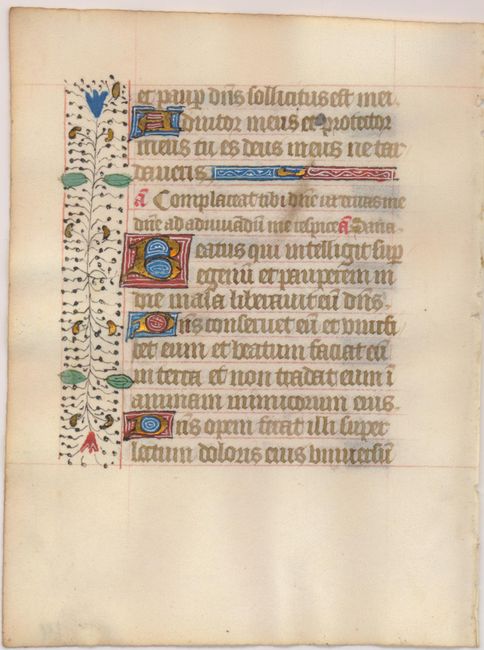 et paup dns sollicitus est mei.
Adiutor meus et protector
meus tu es deus meus ne tar
daueris.
a Complaceat tibi dne ut eruas me
dne ad adiuuandu me respice a Sana
Beatus qui intelligit sup
egenu et pauperem in
die mala liberauit eu dns.
Dns conseruet eu et viuifi
cet eum et beatum faciat eu
in terra et non tradat eum i
animam inimicorum eius.
Dns opem ferat illi super
lectum doloris eius vniuersu